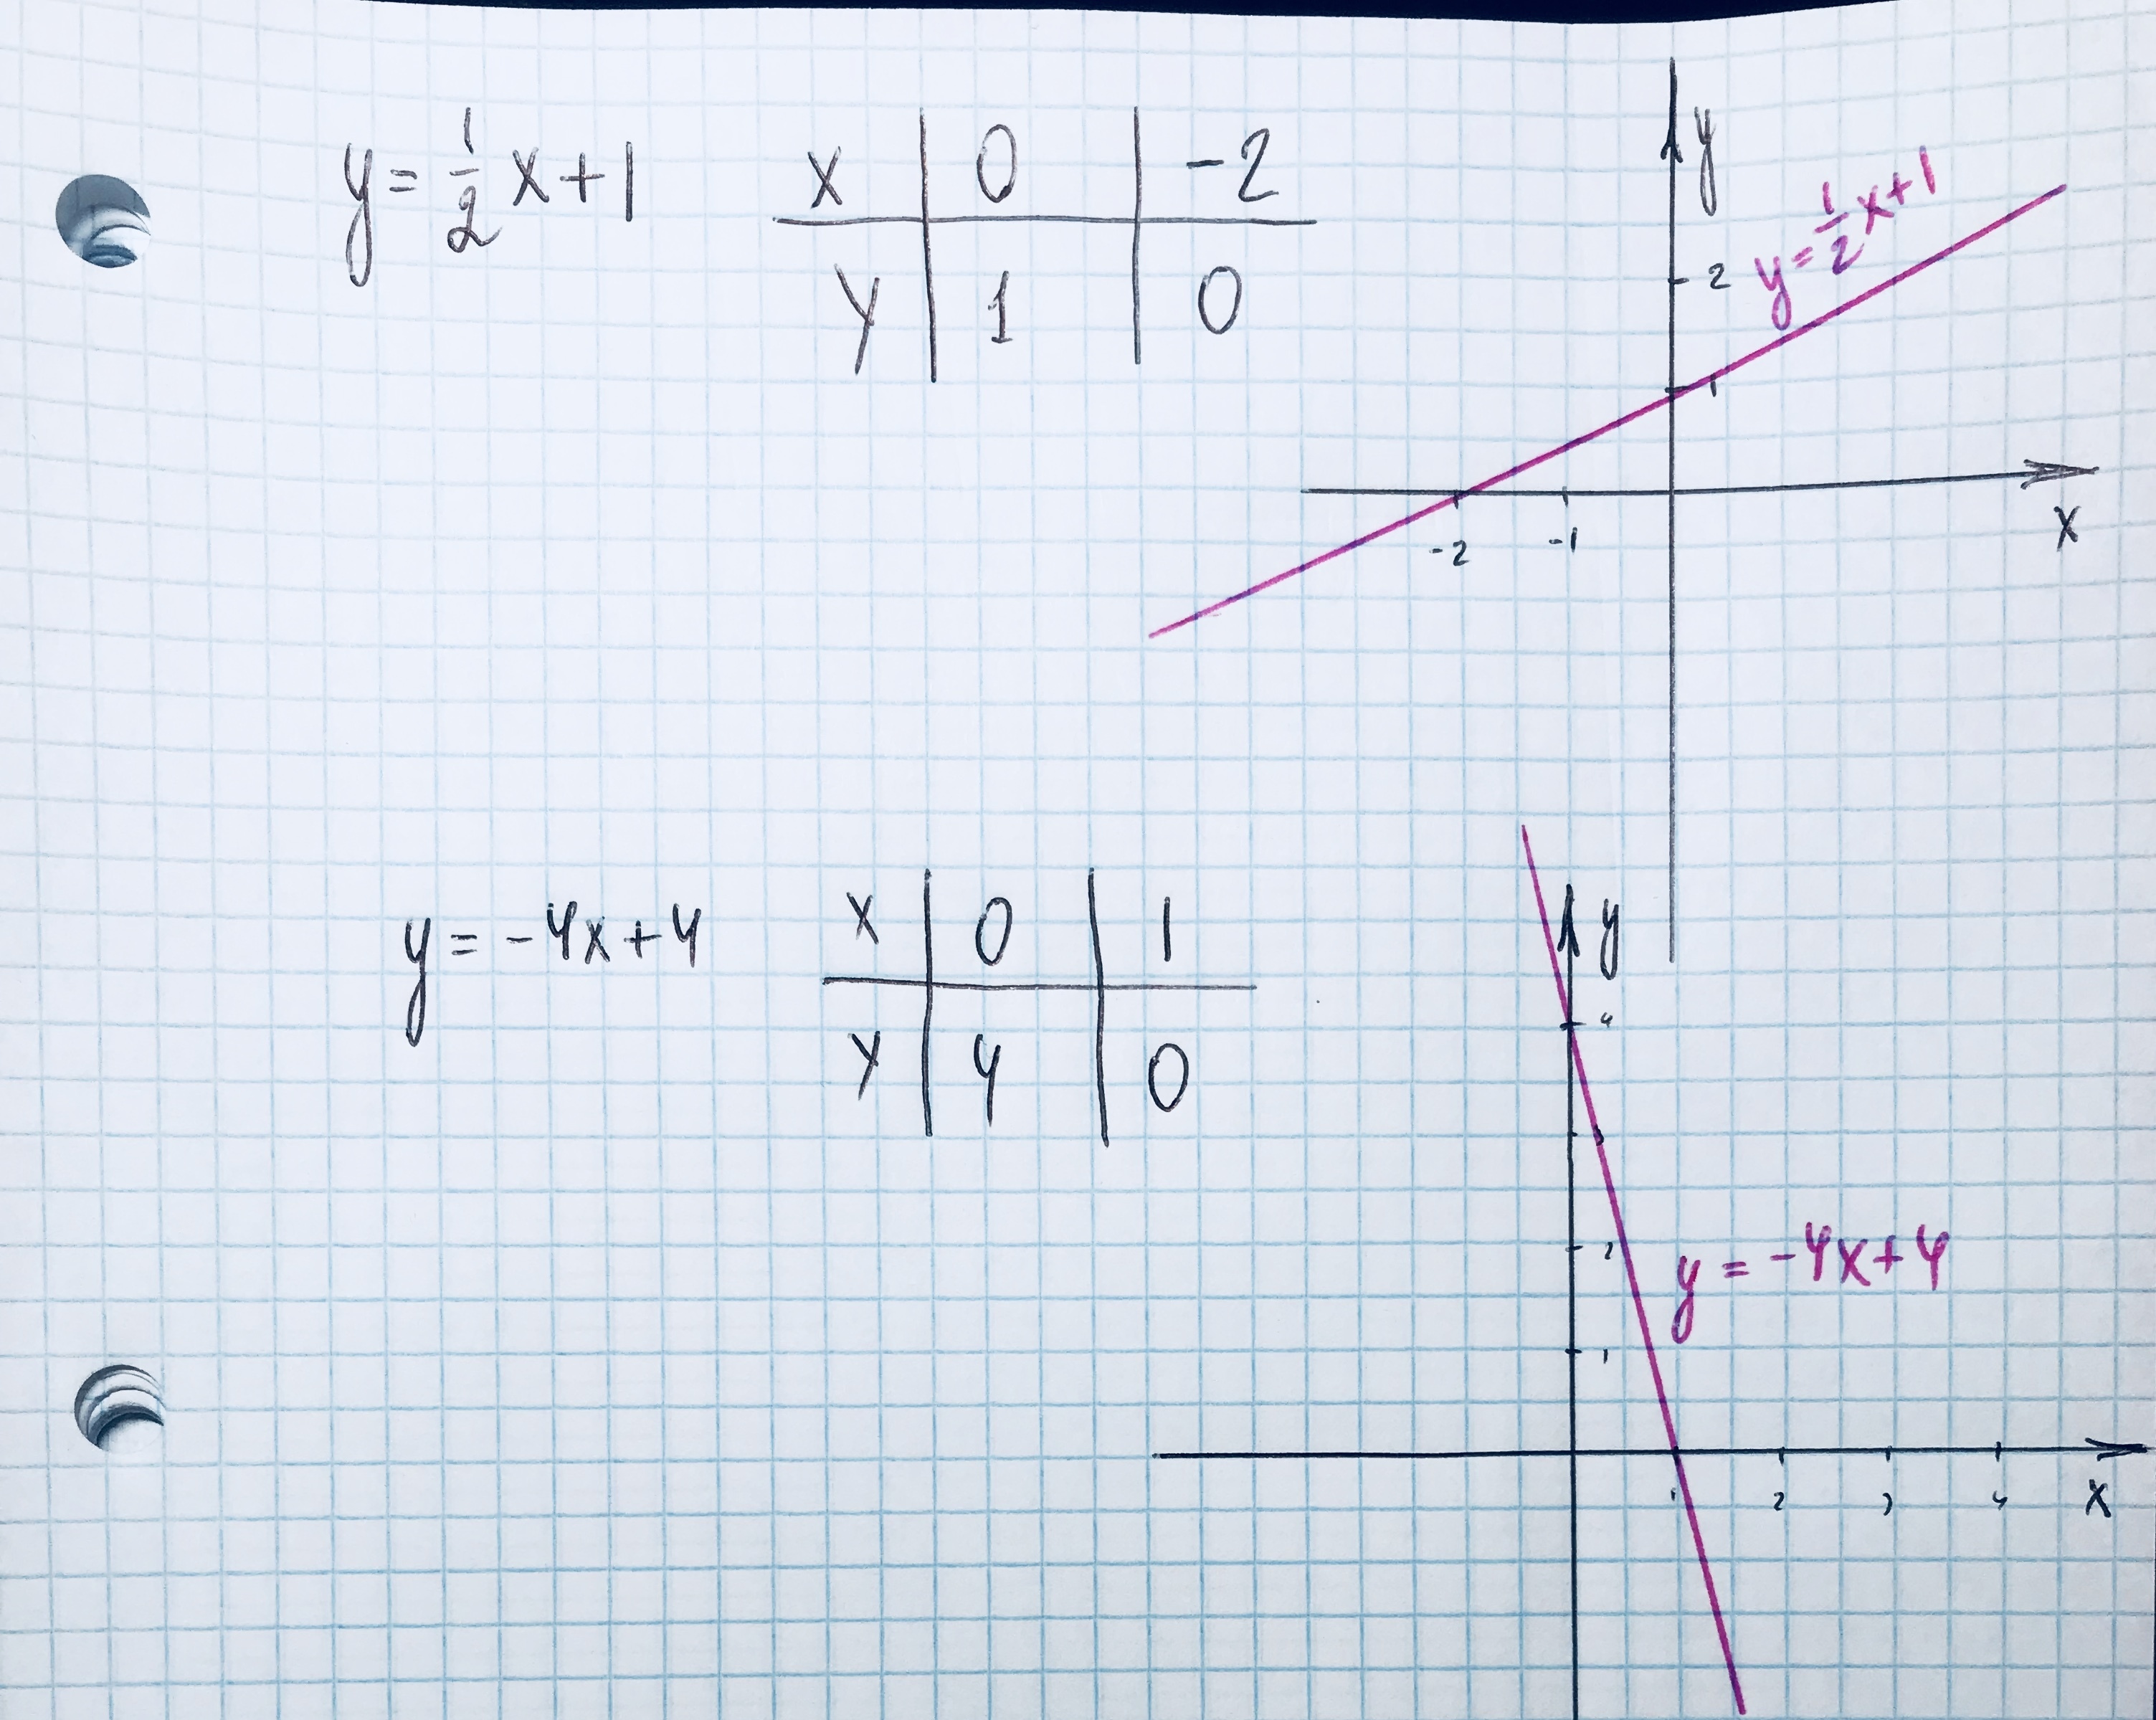 y = 1/2 x + 1
x | 0 | -2
y | 1 | 0
y
y = 1/2 x + 1
2
1
-2 -1
x
y = -4x + 4
x | 0 | 1
y | 4 | 0
y
4
3
2
y = -4x + 4
1
1 2 3 4 x